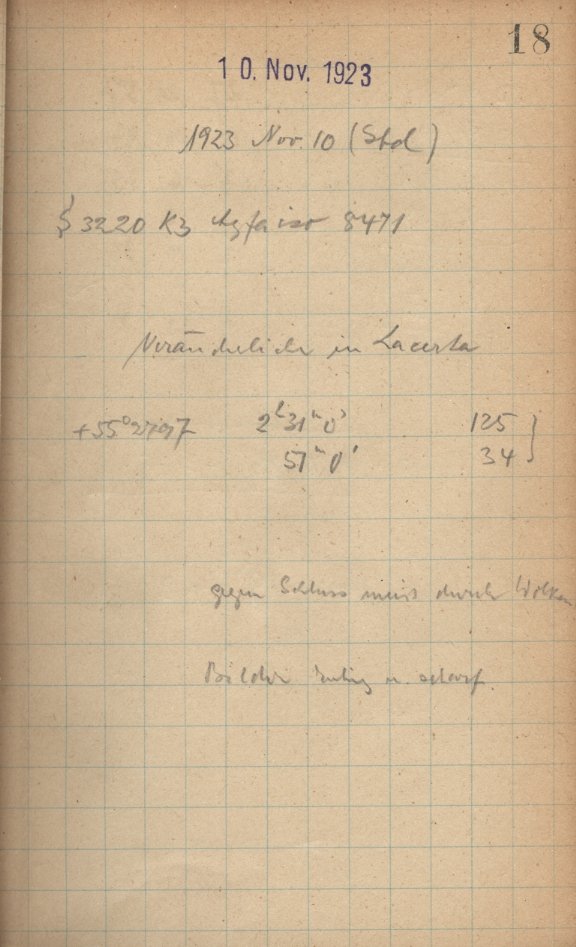 18
10. Nov. 1923
1923 Nov. 10 (Sbd)
S 3220 K3 Agfa iso 8471
Veränderliche in Lacerta
+55°2797 2ʰ31ᵐ0ˢ 125
57ᵐ0ˢ 34
gegen Schluss meist durch Wolken
Bilder ruhig u. scharf.